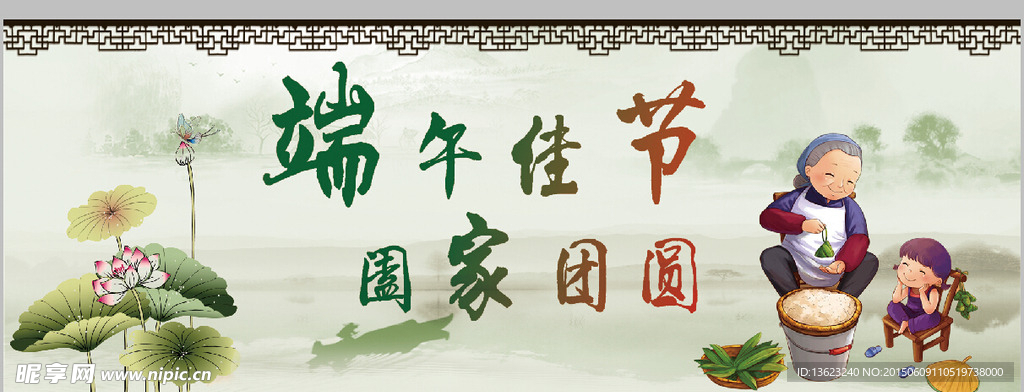 端午佳节
阖家团圆
昵享网 www.nipic.cn
ID:13623240 NO:20150609110519738000